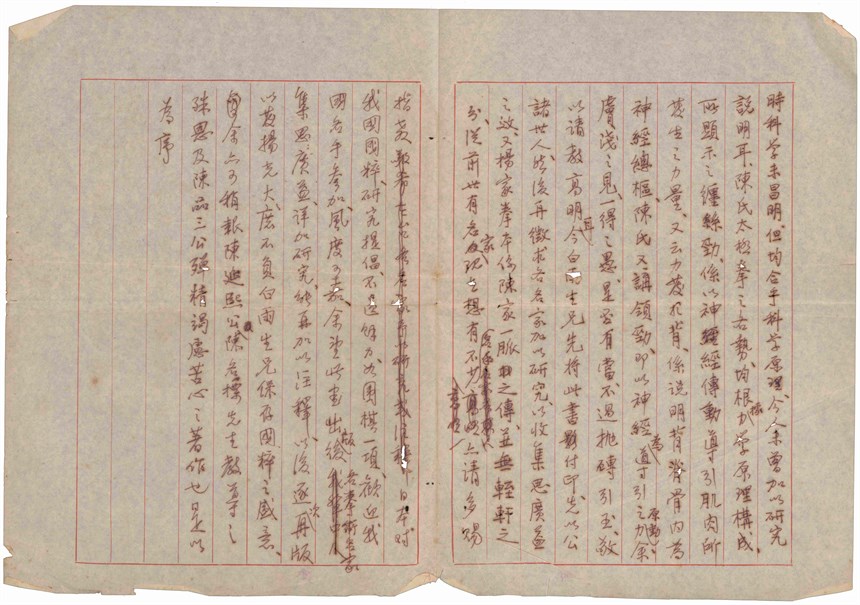 時科学未昌明但均合乎科学原理今人未曾加以研究
說明耳陳氏太極拳之各勢均根據力学原理構成
所顯示之纏絲勁係以神經傳動導引肌肉所
發生之力量又云力發於背係說明背脊骨内為
神經總樞陳氏又講領勁即以神經為導引之原動力余
膚淺之見一得之愚是否有當不過拋磚引玉敬
以請教高明耳今白雨生兄先將此書影付印先以公
諸世人然後再徵求各名家加以研究以收集思廣益
之效又楊家拳本係陳家一脈之傳並無輊軒之
分從前世有名家及現世想有不少高明亦請多賜
指英 日本对
我國國粹研究提倡不遺餘力如圍棋一項歡迎我
國名手參加風度可嘉余望此書出版後各拳術名家
集思廣益詳加研究能再加以注釋以後逐次再版
以發揚光大庶不負白雨生兄保存國粹之盛意
余亦可稍報陳延熙公陳名標先生教導之
殊恩及陳品三公殫精竭慮苦心之著作也是以
為序